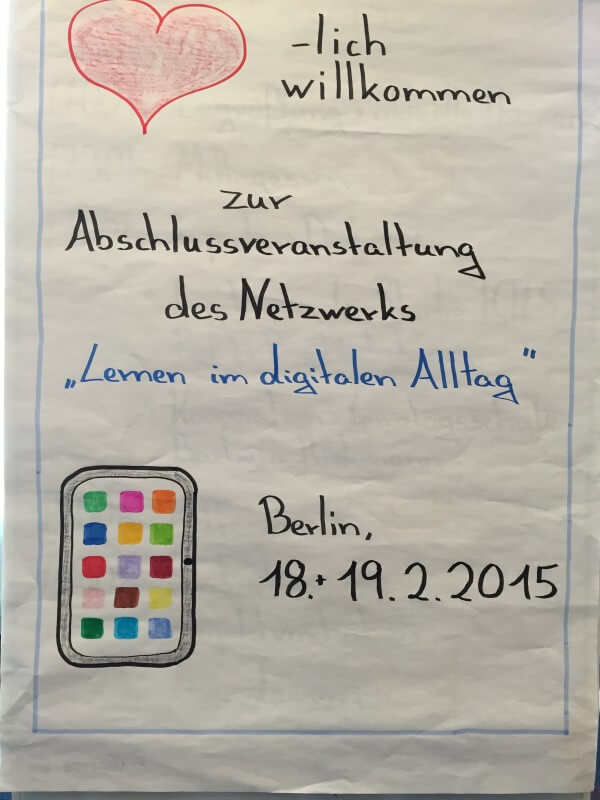 -lich
willkommen
zur
Abschlussveranstaltung
des Netzwerks
„Lernen im digitalen Alltag“
Berlin,
18.+19.2.2015